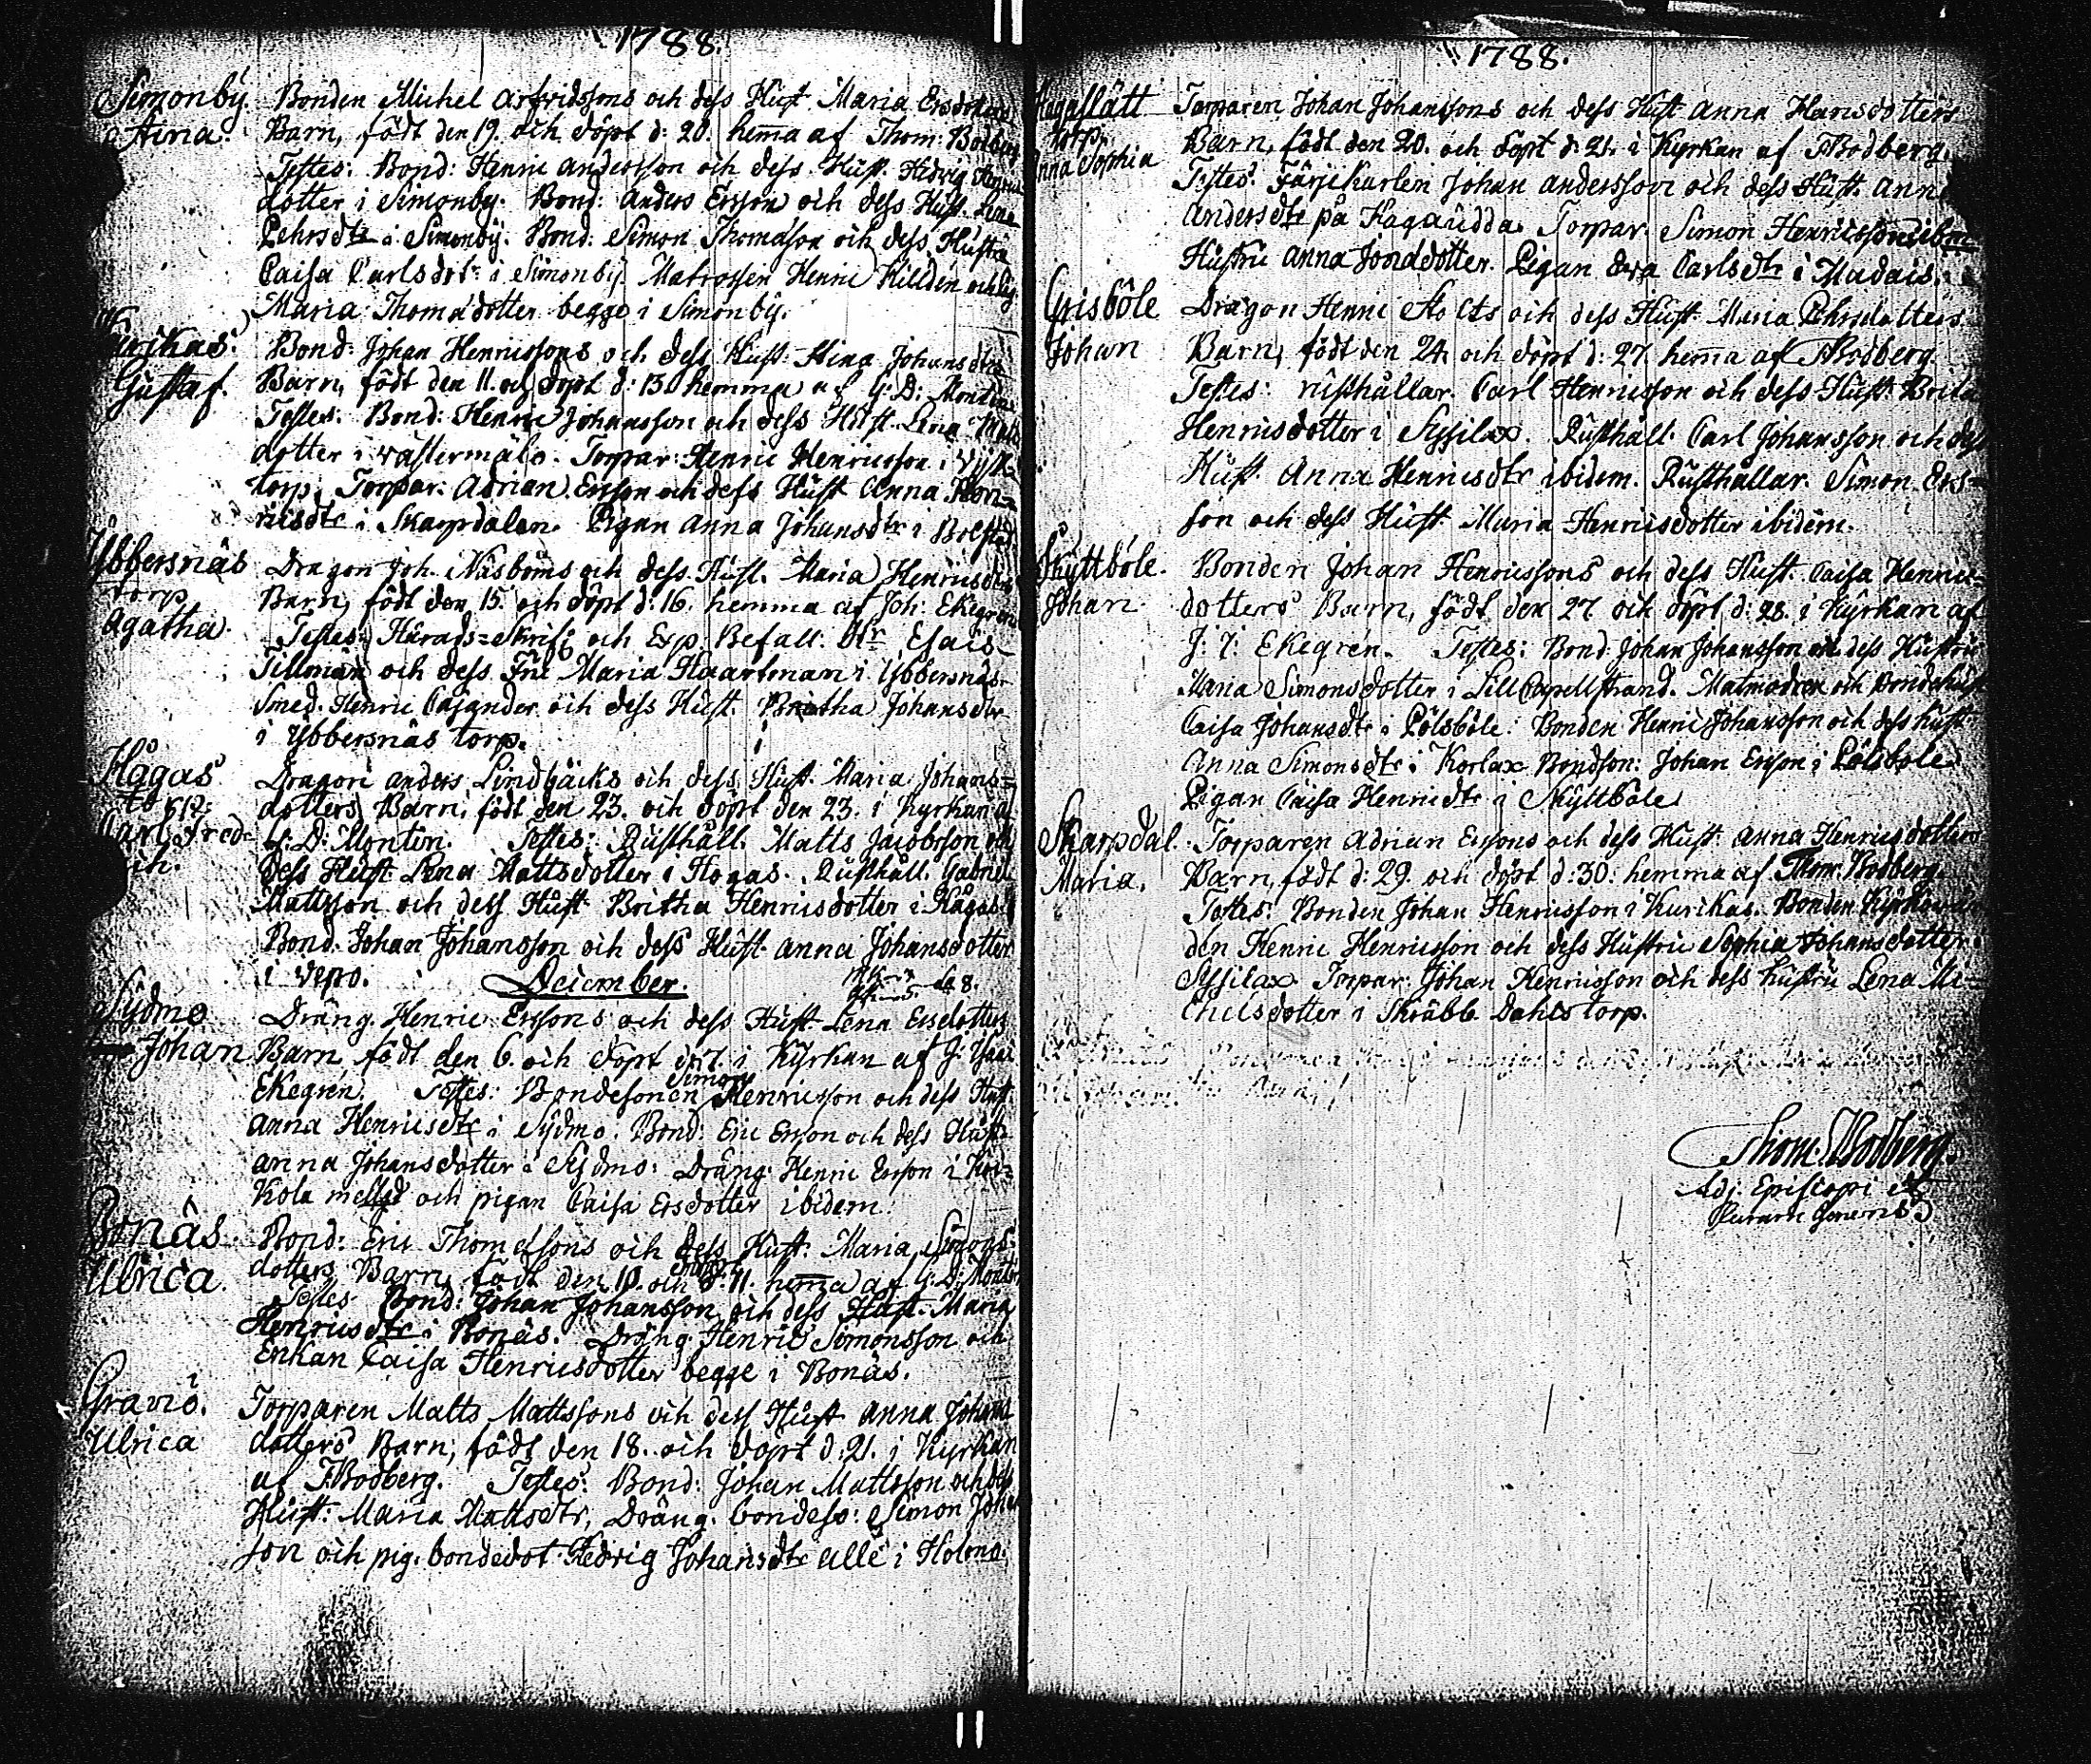 1788.
Simonby. Bonden Michel Arfridssons och dess Hust. Maria Ersdotters
Stina. Barn, födt den 19. och döpt d: 20. hem̄a af Thom: Bodberg
Testes: Bond: Henric Andersson och dess Hust. Hedvig Henrics
dotter i Simonby. Bond: Anders Ersson och dess Hust. Lena
Pehrsdtr i Simonby. Bond: Simon Thomasson och dess Hustru
Caisa Carlsdotr i Simonby. Matrossen Henric Killdin och
Maria Thomædotter begge i Simonby.
Kurikas Bond: Johan Henricssons och dess Hust. Stina Johansdtrs
Gustaf. Barn, födt den 11. och döpt d: 13. hemma af G: D: Montin.
Testes: Bond: Henric Johansson och dess Hust. Lena Matts
dotter i . Torpar: Henric Henricsson i
torp. Torpar: Adrian Ersson och dess Hust Anna Hen-
ricsdtr i Skarpdalen. Pigan Anna Johansdtr i Bolstad.
Ybbersnäs Dragon Joh. Näsböms och dess Hust. Maria Henricsdtrs
torp Barn, födt den 15. och döpt d: 16. hemma af Joh: Ekegren
Agatha. Testes: Härads=skrif: och Exp. Befall. Hr Esais
Tillman och dess Fru Maria Haartman i Ybbersnäs.
Smed. Henric Cajander och dess Hust. Britha Johansdtr
i Ybbersnäs torp.
Hågas Dragon Anders Lindbäcks och dess Hust. Maria Johans=
torp: dotters Barn, födt den 23. och döpt den 23. i Kyrkan af
Carl Fred- G: D: Montin. Testes: Rusthåll. Matts Jacobsson och
rich. dess Hust Lena Mattsdotter i Hogas. Rusthåll. Gabriel
Mattsson och dess Hust Britha Henricsdotter i Hågas.
Bond. Johan Johansson och dess Hust. Anna Johansdotter
i Vepo. December.
Sydmo Dräng. Henric Erssons och dess Hust Lena Ersdotters
Johan Barn, födt den 6. och döpt d: 7. i Kyrkan af J:
Ekegren. Testes: Bondesonen Simon Henricsson och dess Hust.
Anna Henricsdtr i Sydmo. Bond: Eric Ersson och dess Hust.
Anna Johansdotter i Sydmo. Dräng. Henric Ersson i
och pigan Caisa Ersdotter ibidem.
Bonäs. Bond: Eric Thomessons och dess Hust. Maria Simons-
Ulrica dotters Barn, födt den 10. och döpt d: 11. hem̄a af G: D: Montin
Testes Bond: Johan Johansson och dess Hust. Maria
Henricsdtr i Bonäs. Dräng. Henric Simonsson och
Enkan Caisa Henricsdotter begge i Bonäs.
Gravió. Torparen Matts Mattssons och dess Hust Anna Johans
Ulrica dotters Barn, födt den 18. och döpt d: 21. i Kyrkan
af T.Bodberg. Testes: Bond: Johan Mattsson och dess
Hust: Maria Mattsdtr, Dräng. bondeso: Simon Johan
son och pig. bondedot Hedvig Johansdtr alle i Holma.
1788.
Hagaslätt Torparen Johan Johanssons och dess Hust Anna Hansdotters
torp Barn, födt den 20. och döpt d: 21. i Kyrkan af TBodberg.
Anna Sophia Testes: Färjekarlen Johan Andersson och dess Hust. Anna
Andersdtr på Hagaudda. Torpar. Simon Henricsson
Hustru Anna Jonædotter. Pigan Ewa Carlsdtr i Madais.
Grisböle Dragon Henric Stolts och dess Hust. Maria Pehrsdotters
Johan Barn, födt den 24. och döpt d: 27. hem̄a af TBodberg.
Testes: rusthållar. Carl Henricsson och dess Hust: Brita
Henricsdotter i Syssilax. Rusthåll. Carl Johansson och dess
Hust. Anna Henricsdtr ibidem. Rusthållar. Simon Ers=
son och dess Hust. Maria Henricsdotter ibidem.
Skyttböle. Bonden Johan Henricssons och dess Hust. Caisa Henrics-
Johan dotters Barn, födt den 27 och döpt d: 28. i Kyrkan af
J: I: Ekegren. Testes: Bond. Johan Johansson och dess Hustru
Maria Simonsdotter i Lill Capellstrand. Matmodren och Bondehust
Caisa Johansdtr i Pölsböle. Bonden Henric Johansson och dess hust.
Anna Simonsdtr i Korlax Bondson: Johan Ersson i Pölsböle.
Pigan Caisa Henricsdtr i Skyttböle.
Skarpdal. Torparen Adrian Erssons och dess Hust. Anna Henricsdotters
Maria. Barn, födt d: 29. och döpt d: 30: hemma af Thom. Bodberg.
Testes: Bonden Johan Henricsson i Kurikas. Bonden
den Henric Henricsson och dess Hustru Sophia Johansdotter
Syssilax Torpar: Johan Henricsson och dess hustru Lena Mi=
chelsdotter i Skräbb Dahls torp.
Thom: Bodberg.
Adj: Episcopi et